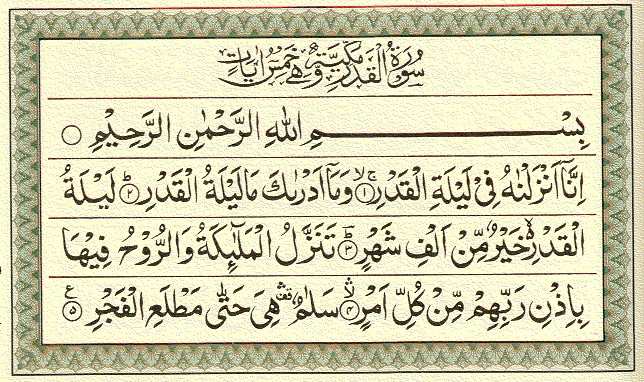 سُوْرَةُ الْقَدْرِ مَكِّيَّةٌ وَّهِىَ خَمْسُ اٰيَاتٍ
بِسْــــــــــــــــــــــمِ اللّٰهِ الرَّحْمٰنِ الرَّحِيْمِ ۝
اِنَّاۤ اَنْزَلْنٰهُ فِىْ لَيْلَةِ الْقَدْرِ ۝١ وَمَاۤ اَدْرٰىكَ مَا لَيْلَةُ الْقَدْرِ ۝٢ لَيْلَةُ
الْقَدْرِ ۙ خَيْرٌ مِّنْ اَلْفِ شَهْرٍ ۝٣ تَنَزَّلُ الْمَلٰٓئِكَةُ وَالرُّوْحُ فِيْهَا
بِاِذْنِ رَبِّهِمْ مِّنْ كُلِّ اَمْرٍ ۝٤ سَلٰمٌ ۛ هِىَ حَتّٰى مَطْلَعِ الْفَجْرِ ۝٥ ع